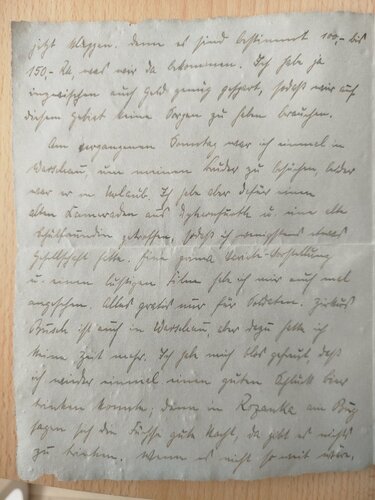 jetzt klappen. Denn es sind bestimmt 100,- bis
150,- RM, was wir da bekommen. Ich habe ja
inzwischen auch Geld genug gespart, sodaß wir auf
diesem Gebiet keine Sorgen zu haben brauchen.
Am vergangenen Sonntag war ich einmal in
Warschau, um meinen Bruder zu besuchen, leider
war er in Urlaub. Ich habe aber dafür einen
alten Kameraden aus u. eine alte
Schulfreundin getroffen, sodaß ich wenigstens etwas
Gesellschaft hatte. Eine prima Varieté-Vorstellung
u. einen lustigen Film habe ich mir auch mal
angesehen. Alles gratis nur für Soldaten. Zirkus
Busch ist auch in Warschau, aber dazu hatte ich
keine Zeit mehr. Ich habe mich blos gefreut, daß
ich wieder einmal einen guten Schluck Bier
trinken konnte, denn in Rozanka am Bug
sagen sich die Füchse gute Nacht, da gibt es nichts
zu trinken. Wenn es nicht so weit wäre,